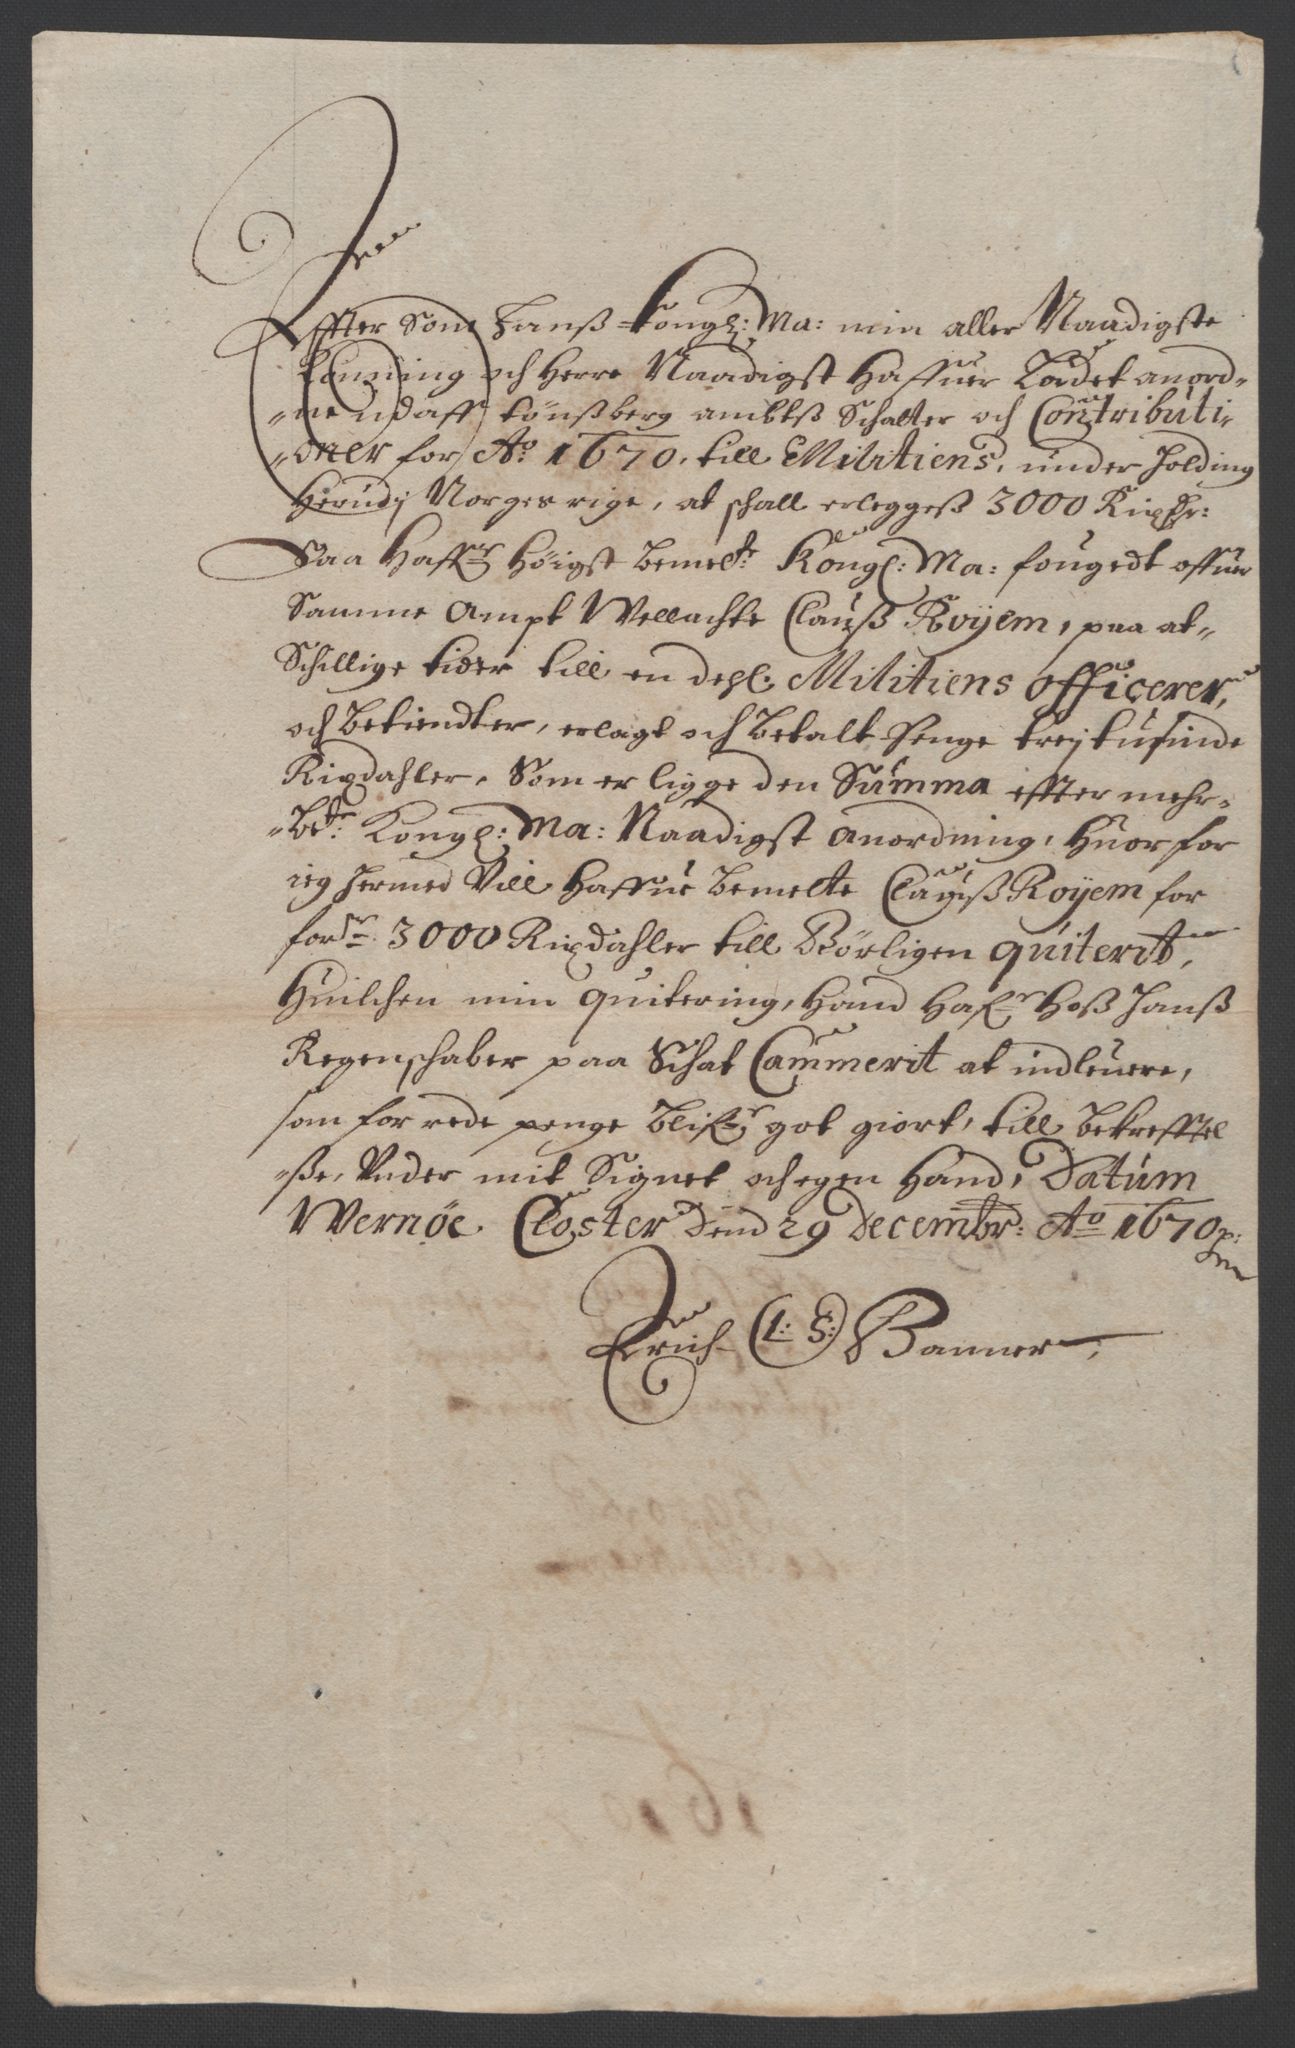 Effter Som Hanß Kongl: Ma: min aller Naadigste
Konning och Herre Naadigst Haffuer Ladet anord-
-ne Udaff tønßberg ambtß Schatter och Contributi-
-oner for Ao: 1670. till Militiens, under holding
Herudj Norges rige, at schall erleggeß 3000 Rixdr:
Saa Haffr Høigst bemelte: Kongl: Ma: fougedt offuer
Samme Ampt Wellachte Clauß Røyem, paa at-
Schillige tider till en dehl. Militiens officerer,
och betiendter, erlagt och betalt Penge trej tusinde
Rixdahler. Som er ligge den Summa effter mehr-
-bte: Kongl: Ma: Naadigst anordning, Huor for
ieg hermed Vill Haffue bemelte Clauß Royem for
fordr 3000 Rixdahler till Børligen quiterit,
Huilchen min quitering, Hand Hafr Hoß hanß
Regenschaber paa Schat Cammerit at indleuere,
som for rede penge blifr got giort, till bekrefftel
-ße, Under mit Signet och egen Hand, Datum
Wernøe Closter Dend 29 Decembr: Ao 1670 p:
Erich (L: S:) Banner